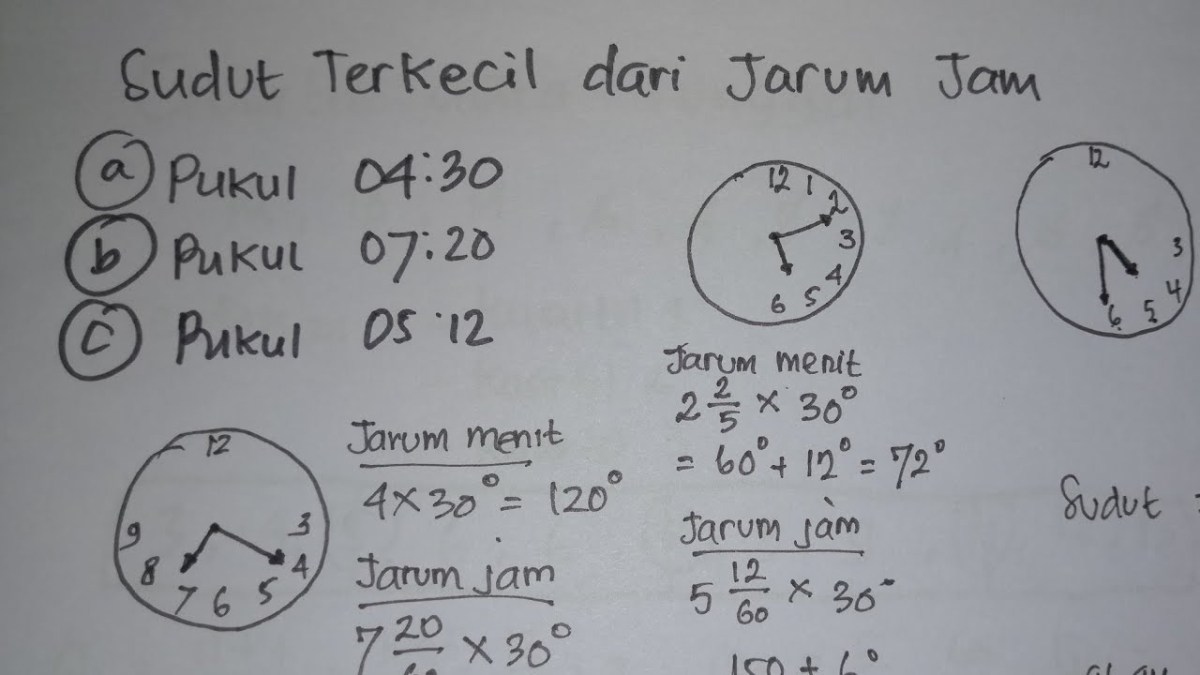 Sudut Terkecil dari Jarum Jam
a Pukul 04:30
b Pukul 07:20
c Pukul 05:12
12 1 2 3 4 5 6
12 3 4 5 6
12 3 4 5 6 7 8 9
Jarum menit
4 × 30° = 120°
Jarum jam
7 20/60 × 30°
Jarum menit
2 2/5 × 30°
= 60° + 12° = 72°
Jarum jam
5 12/60 × 30°
150 + 6°
Sudut